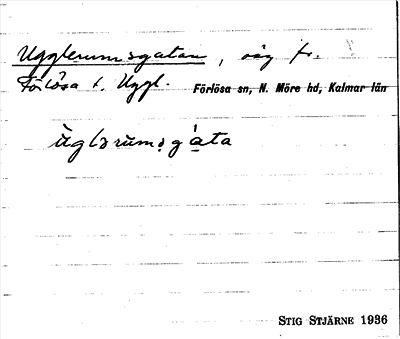 Ugglerumsgatan, väg fr.
Förlösa t. Uggl. Förlösa sn, N. Möre hd, Kalmar län
ùglərumsgáta
STIG STJÄRNE 1936